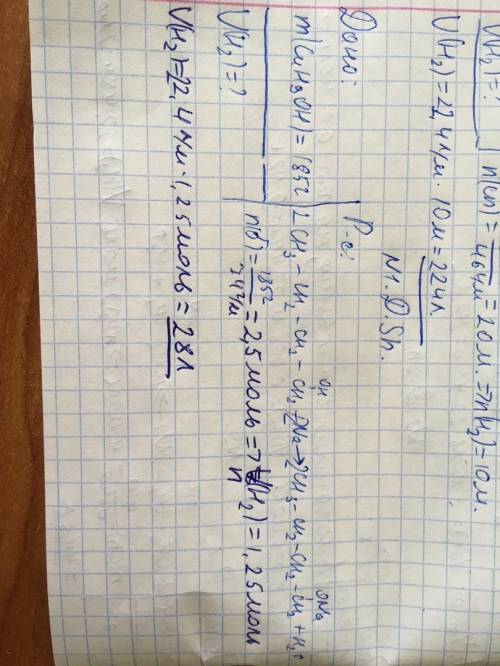 V(H₂)=? | n(сп) = /46г/м = 20м. => n(H₂) = 10м.
V(H₂) = 22,4 л/м · 10м = 224л.
N1. D.Sh.
Дано: Р-е:
m(C₄H₉OH) = 185г | 2CH₃-CH₂-CH₂-CH₂OH+2Na→2CH₃-CH₂-CH₂-CH₂ONa+H₂↑
V(H₂)=? n(б) = 185г/74г/м = 2,5моль => n(H₂) = 1,25моль
V(H₂)=22,4 л/м · 1,25моль = 28л